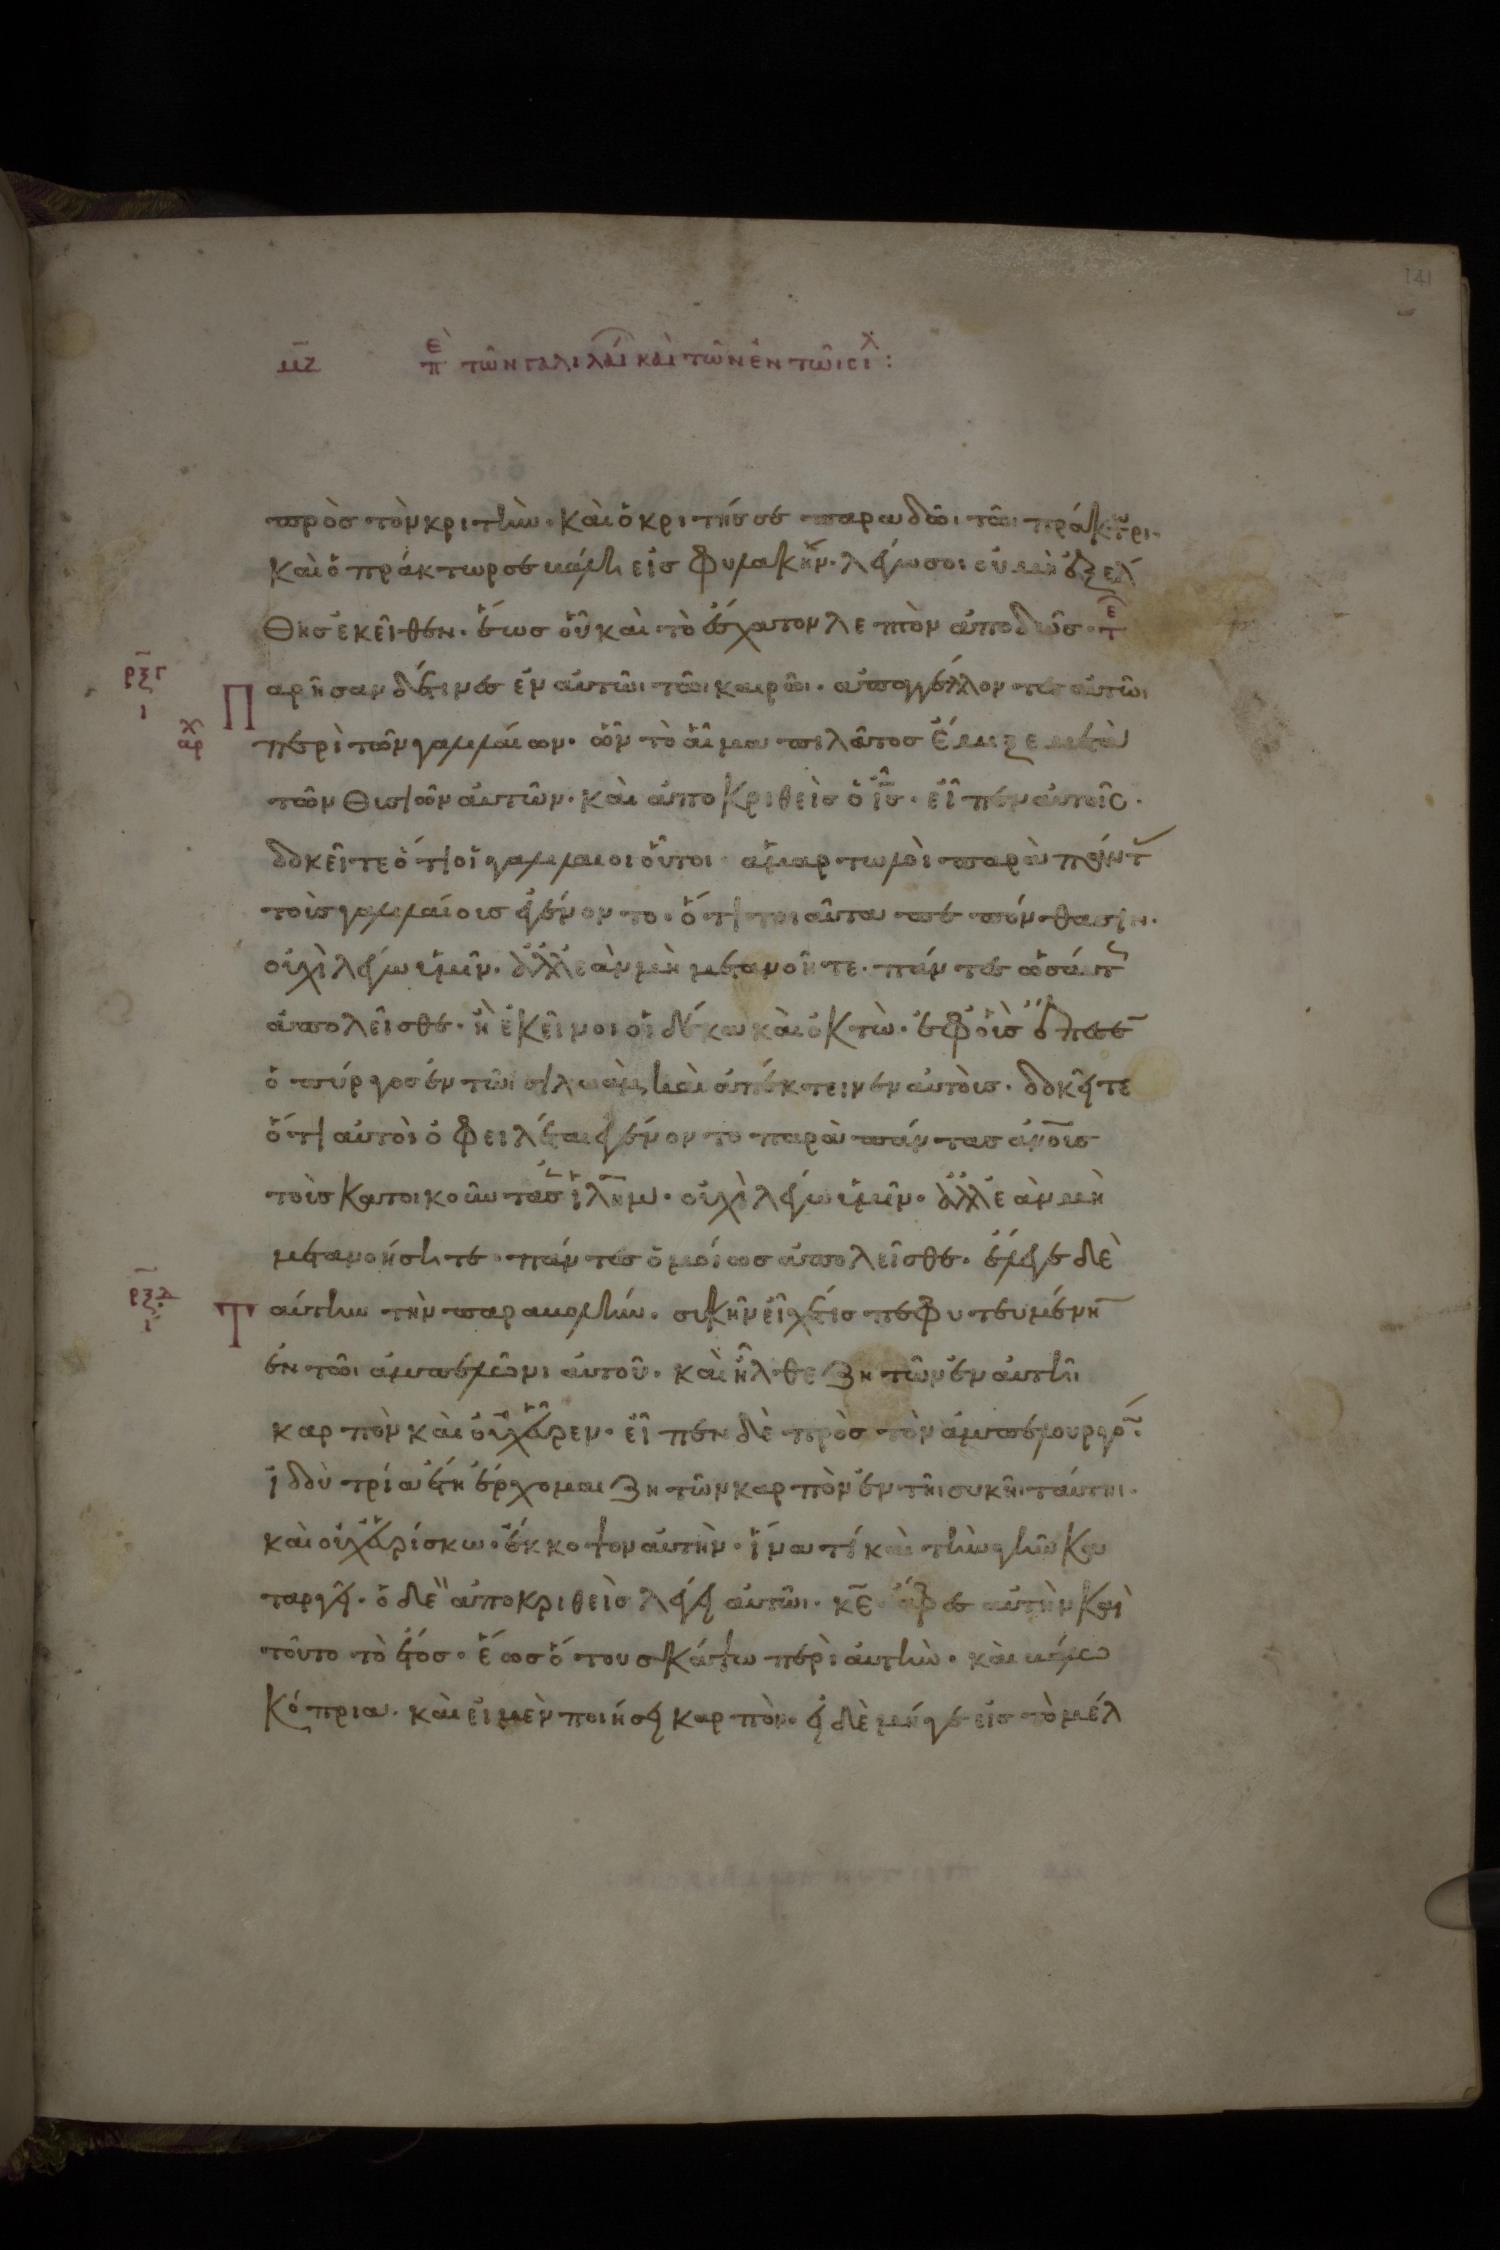 141
μζ πε τῶν γαλιλαί καὶ τῶν ἐν τῶι σιλ :
πρὸσ τὸν κριτὴν· καὶ ὁ κριτής σε παραδῶι τῶι πράκτωρι·
καὶ ὁ πράκτωρ σε βάλη εἰσ φυλακήν· λέγω σοι οὐ μὴ ἐξελ
θησ εκεῖθεν· ἕως οὗ καὶ τὸ ἔσχατον λεπτὸν ἀποδῶσ· τε
ρξγ
ι
αρ χ
Παρῆσαν δέ τινεσ ἐν αὐτῶι τῶι καιρῶι· ἀπαγγέλλοντεσ αὐτῶι
περὶ τῶν γαλιλαίων· ὧν τὸ αἷμα πιλᾶτοσ ἔμιξε μετὰ
τῶν θυσιῶν αὐτῶν· καὶ ἀποκριθεὶσ ὁ ις· εἶπεν αὐτοῖς·
δοκεῖτε ὅτι οἱ γαλιλαιοι οὗτοι ἁμαρτωλοὶ παρὰ πάντ
τοὺσ γαλιλαίουσ ἐγένοντο· ὅτι τοιαῦτα πεπόνθασιν·
οὐχὶ λέγω ὑμῖν· ἀλλ ἐὰν μὴ μετανοῆτε· πάντεσ ὡσάυτ
ἀπολεῖσθε· ἢ ἐκεῖνοι οἱ δέκα καὶ ὀκτὼ· ἐφ οὓσ ἔπεσε
ὁ πύργοσ ἐν τῶι σιλωὰμ καὶ ἀπέκτεινεν αὐτοὺσ· δοκεῖτε
ὅτι αὐτοὶ ὀφειλέται ἐγένοντο παρὰ πάντασ ἀνουσ
τοὺσ κατοικοῦντασ ιλημ· οὐχὶ λέγω ὑμῖν· ἀλλ ἐὰν μὴ
μετανοήσητε· πάντεσ ὁμοίωσ ἀπολεῖσθε· ἔλεγε δὲ
ρξδ
ι
Ταύτην τὴν παραβολήν· συκῆν εἶχέ τισ πεφυτευμένην
ἐν τῶι ἀμπελῶνι αὐτοῦ· καὶ ἦλθε ζητῶν ἐν αὐτῆ
καρπὸν καὶ οὐχ εὗρεν· εἶπεν δὲ πρὸσ τὸν ἀμπελουργόν·
ἰδοὺ τρία ἔτη ἔρχομαι ζητῶν καρπὸν ἐν τῆι συκῆι ταύτηι·
καὶ οὐχ εὑρίσκω· ἔκκοψον αὐτὴν· ἵνα τί καὶ τὴν γῆν κα
ταργεῖ· ὁ δὲ ἀποκριθεὶσ λέγει αὐτῶι· κε ἄφεσ αὐτὴν καὶ
τοῦτο τὸ ἔτοσ· ἕωσ ὅτου σκάψω περὶ αὐτὴν· καὶ βάλω
κόπρια· καὶ εἰ μὲν ποιήσει καρπὸν· εἰ δὲ μήγε εἰσ τὸ μέλ